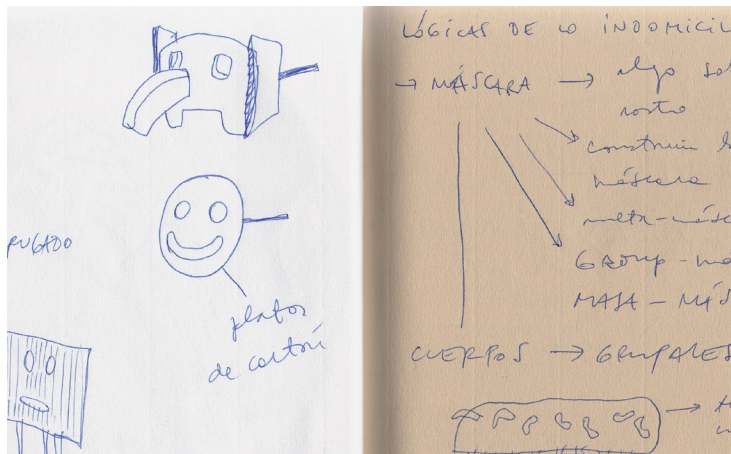 RUGADO
platos
de cartón
LÓGICAS DE LO INDOMICIL
→ MÁSCARA → algo so
rostro
construir l
máscara
meta-másc
GROUP-ma
MASA-MÁS
CUERPOS → GRUPALES